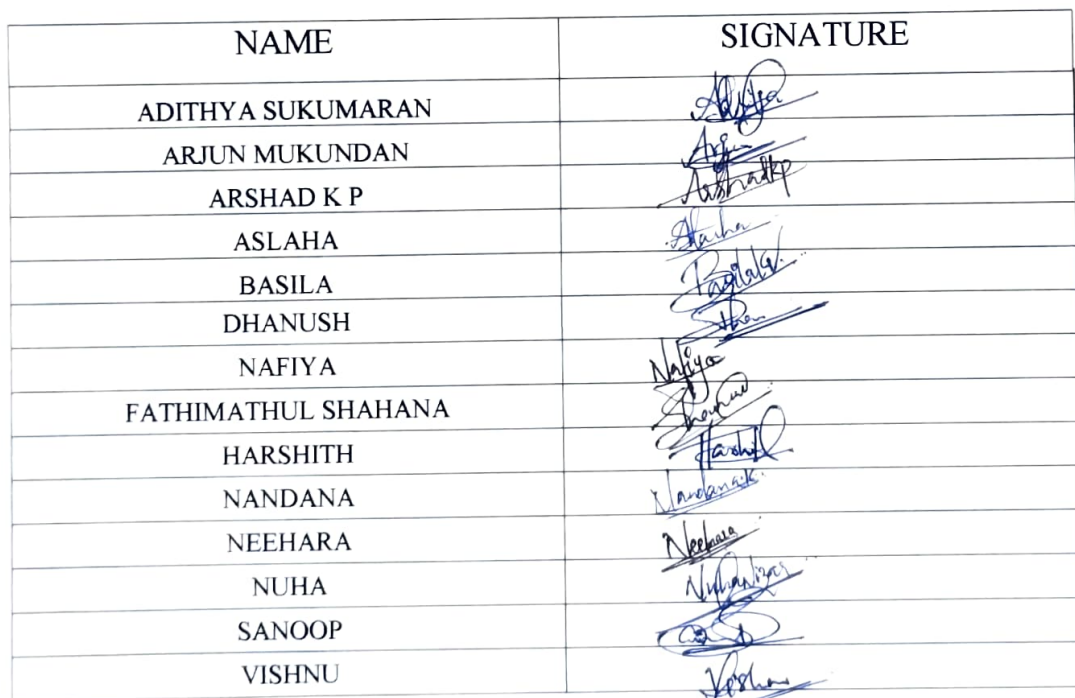 NAME SIGNATURE
ADITHYA SUKUMARAN Adithya
ARJUN MUKUNDAN Arjun
ARSHAD K P Arshadkp
ASLAHA
BASILA
DHANUSH
NAFIYA Nafiya
FATHIMATHUL SHAHANA
HARSHITH
NANDANA Nandana.k.
NEEHARA Neehara
NUHA NuhaNizar
SANOOP
VISHNU